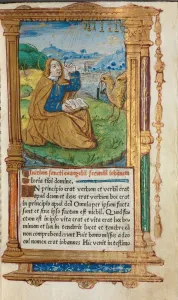 Initium sancti euangelii secundū iohannem
Gloria tibi domine.
IN principio erat verbum et verbū erat
apud deum et deus erat verbum hoc erat
in principio apud deū Omnia per ipsum facta
sunt et sine ipso factum est nichil. Quod factum
est in ipso vita erat et vita erat lux ho
minum et lux in tenebris lucet et tenebre eam
non comprehenderunt Fuit homo missus a deo
cui nomen erat iohannes Hic venit in testimo